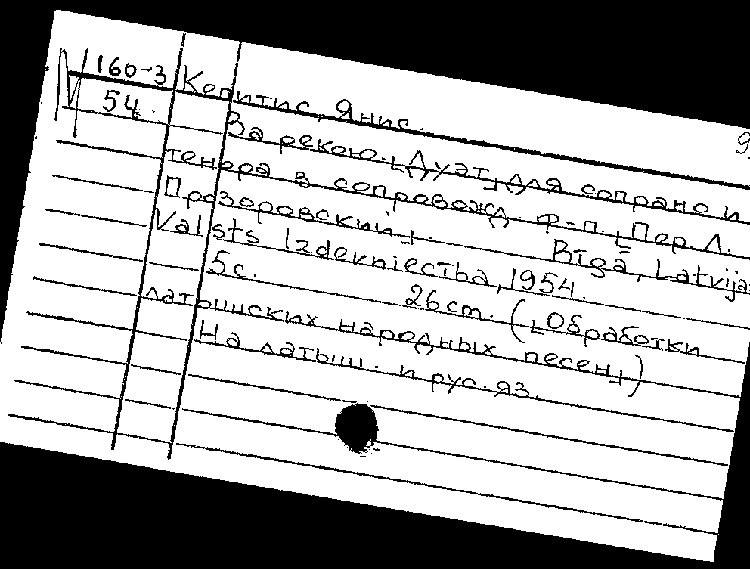 М 160-3 Кепитис, Янис. 9
54. За рекою. [Дуэт] для сопрано и
тенора в сопровожд. ф-п. [Пер. Л.
Прозоровский]. Rīgā, Latvijas
Valsts Izdevniecība, 1954.
5 с. 26 cm. ([Обработки
латышских народных песен])
На латыш. и рус. яз.